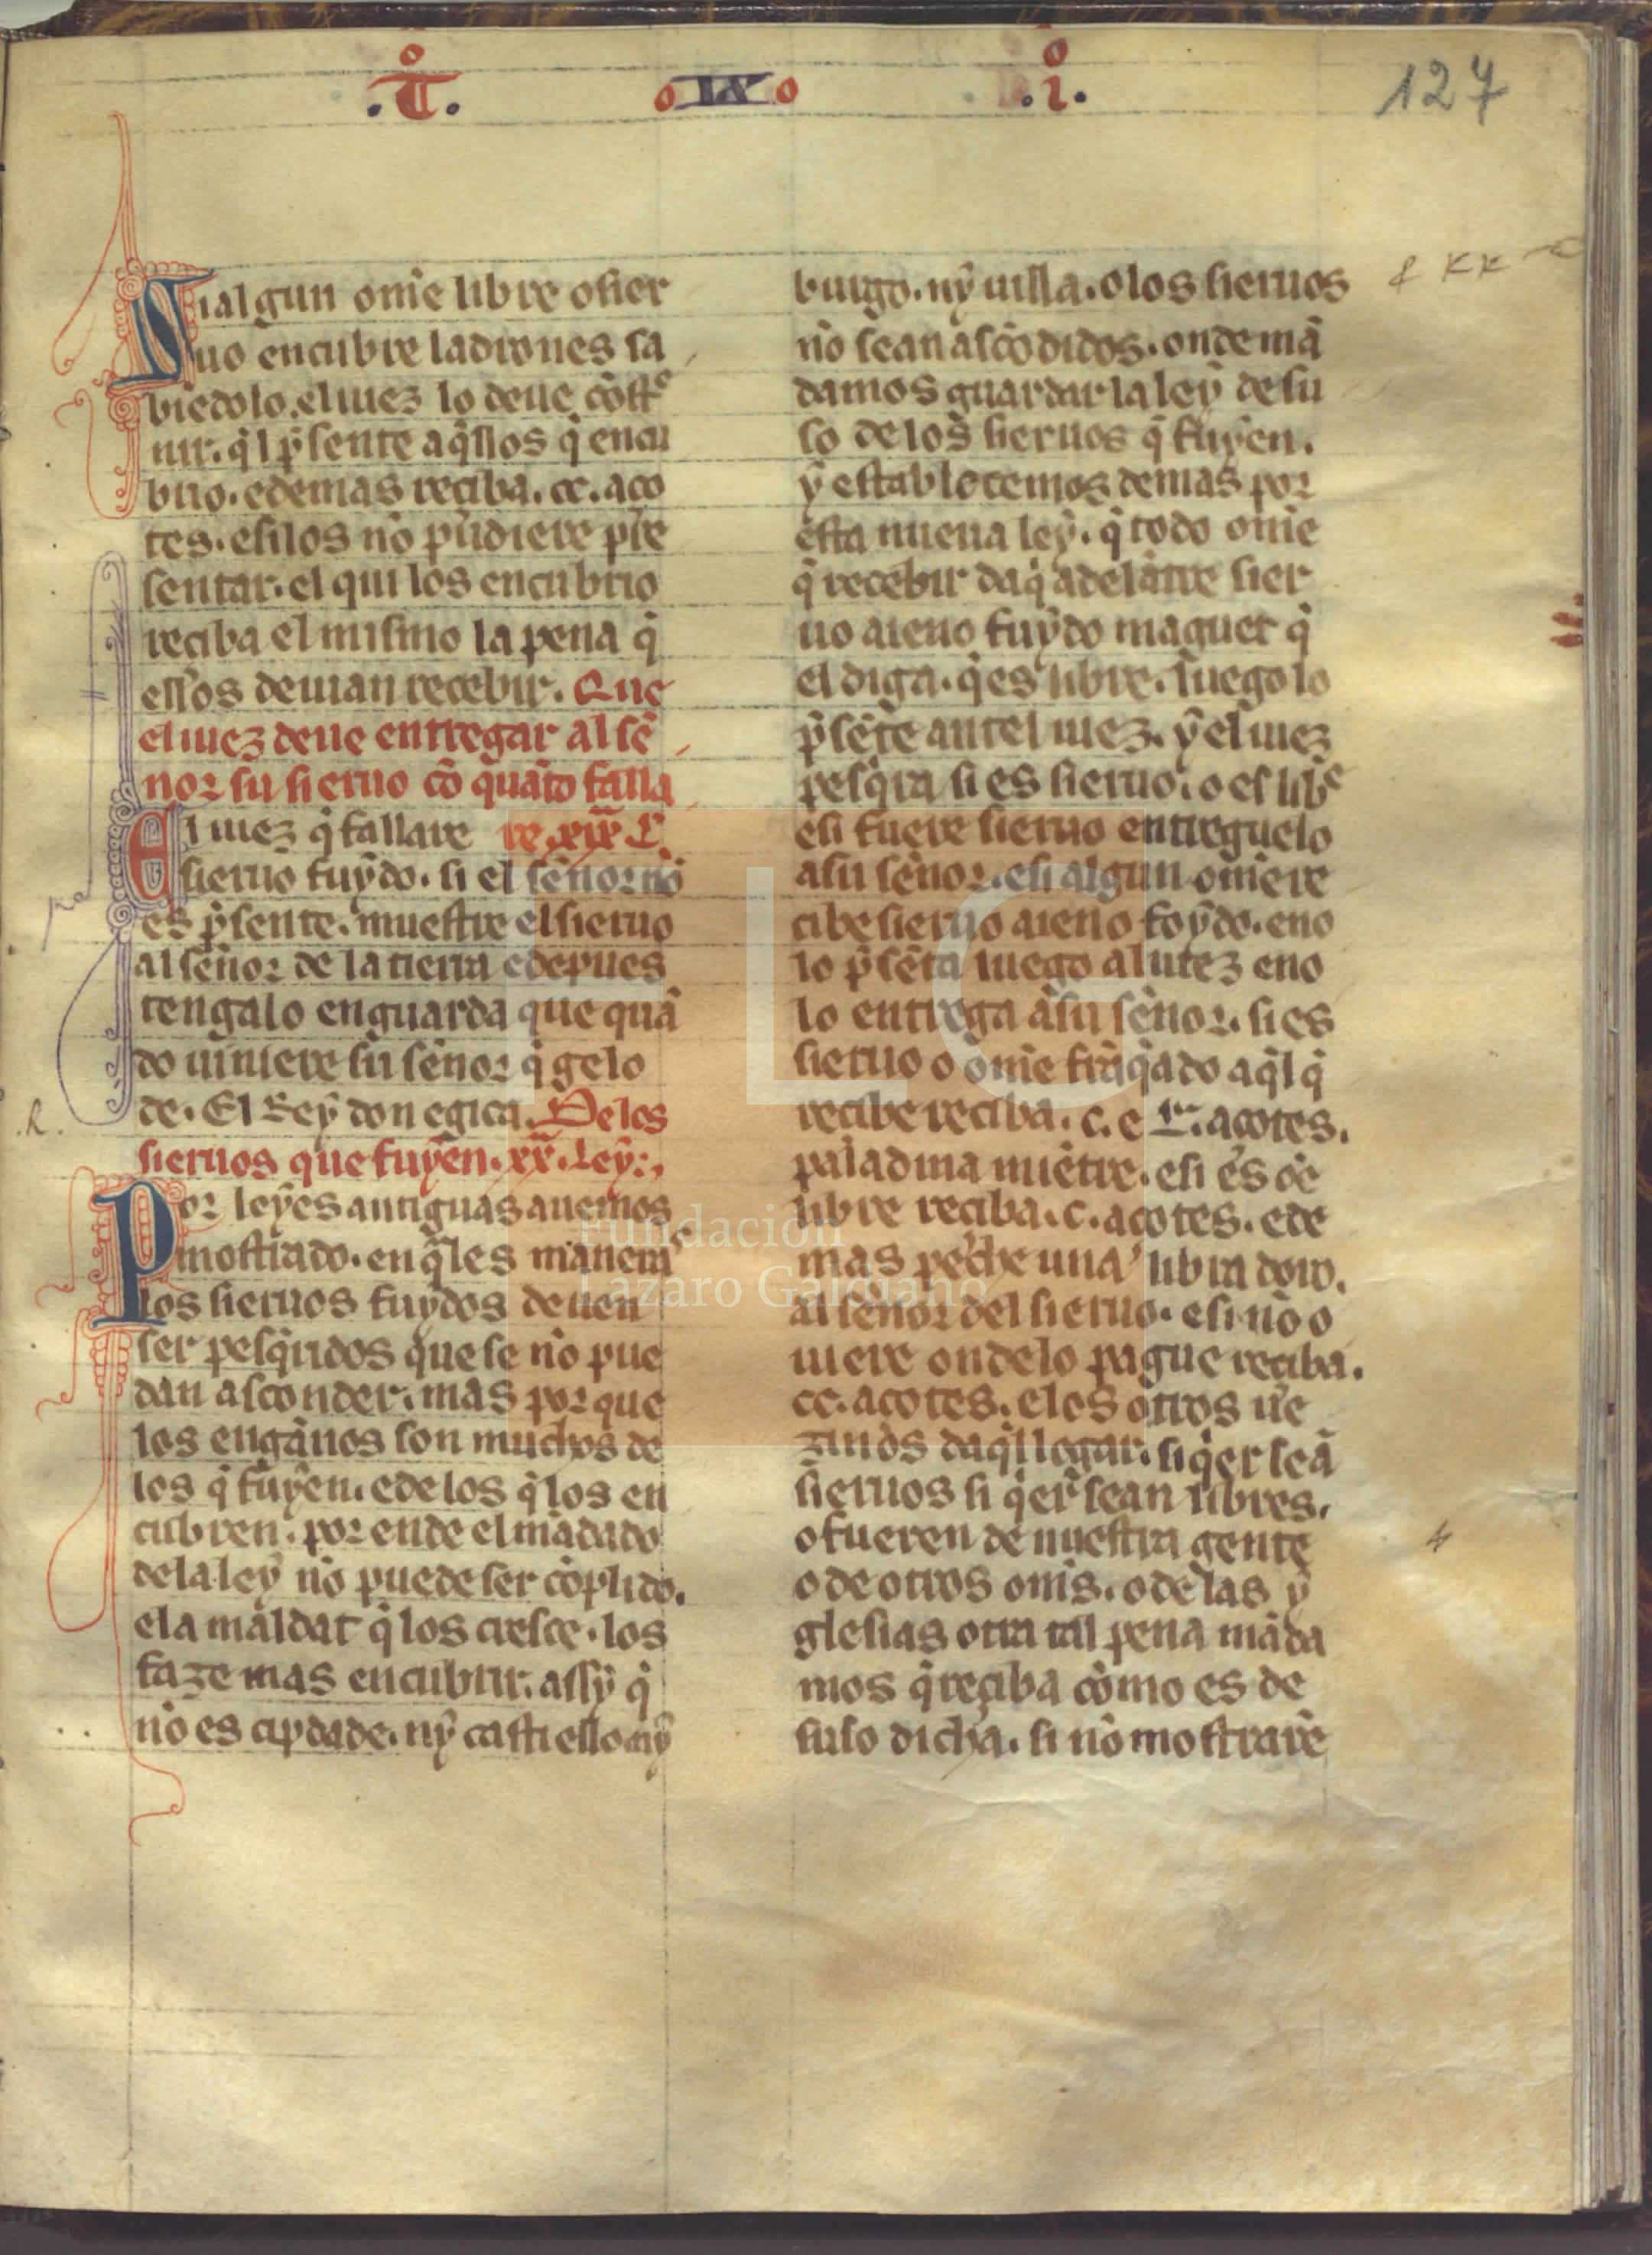 .T̊. IX .i̊.
127
Si algun om̃e libre o sier
uo encubre ladrones sa
biẽdolo. el iuez lo deue cõstr̃
nir. q̃ l p̃sente aq̃llos q̃ encu
brio. e demas reciba. cc. aço
tes. e si los nõ pudiere pre
sentar. el qui los encubrio
reciba el mismo la pena q̃
ellos deuian recebir. Que
el iuez deue entregar al se
ñor su sieruo cõ quãto falla
re. xix. L.
El iuez q̃ fallare
sieruo fuydo. si el señor nõ
es p̃sente. muestre el sieruo
al señor de la tierra e depues
tengalo en guarda que quã
do uiniere su señor q̃ gelo
de. El Rey don egica. De los
.R.
sieruos que fuyen. xx. Ley.
Por leyes antiguas auemos
mostrado. en q̃les manera
los sieruos fuydos deuen
ser pesq̃ridos que se nõ pue
dan asconder. mas por que
los engãnos son muchos de
los q̃ fuyen. e de los q̃ los en
cubren. por ende el mãdado
de la ley nõ puede ser cõplido.
e la maldat q̃ los cresce. los
faze mas encubrir. assy q̃
nõ es cipdade. nỹ castiello nỹ
burgo. nỹ uilla. o los sieruos
nõ sean ascõdidos. onde mã
damos guardar la ley de su
so de los sieruos q̃ fuyen.
y establecemos demas por
esta nueua ley. q̃ todo om̃e
q̃ recebir daq̃ adelãtre sier
uo aieno fuydo maguer q̃
el diga. q̃ es libre. luego lo
p̃sẽte antel iuez. y el iuez
pesq̃ra si es sieruo. o es libr̃e
e si fuere sieruo entreguelo
a su señor. e si algun om̃e re
cibe sieruo aieno foydo. e no
lo p̃sẽta luego al iuez e no
lo entrega a su señor. si es
sieruo o om̃e frãq̃ado aq̃l q̃
recibe reciba. c. e L. açotes.
paladina miẽtre. e si es õe
libre reciba. c. açotes. e de
mas peche una libra doro.
al señor del sieruo. e si nõ o
uiere onde lo pague reciba.
cc. açotes. e los otros ue
zinos daq̃l logar. si q̃er seã
sieruos si q̃er sean libres.
o fueren de nuestra gente
o de otros om̃s. o de las y
glesias otra tal pena mãda
mos q̃ reciba cõmo es de
suso dicha. si nõ mostrarẽ
FLG
Fundación
Lázaro Galdiano